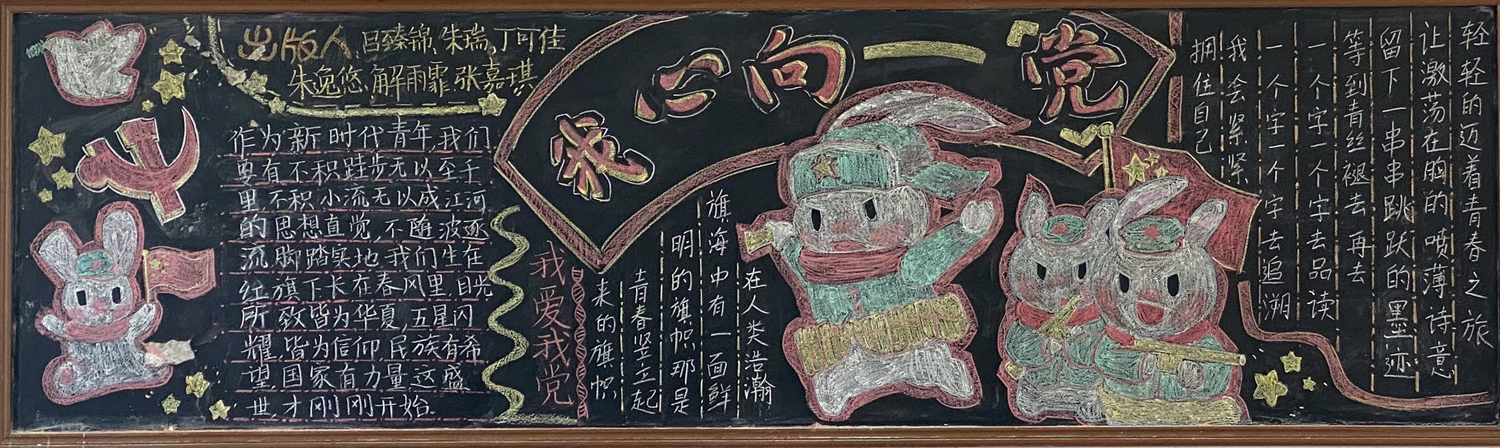 出版人、吕臻锦、朱瑞、丁可佳
朱逸悠、解雨霏、张嘉琪
我心向党
作为新时代青年,我们
要有不积跬步无以至千
里,不积小流无以成江河
的思想直觉,不随波逐
流,脚踏实地我们生在
红旗下长在春风里,目光
所致皆为华夏,五星闪
耀皆为信仰民族有希
望国家有力量这盛
世,才刚刚开始.
我爱我党
在人类浩瀚
旗海中有一面鲜
明的旗帜那是
青春竖立起
来的旗帜
轻轻的迈着青春之旅
让激荡在胸的喷薄诗意
留下一串串跳跃的墨迹
等到青丝褪去再去
一个字一个字去品读
一个字一个字去追溯
我会紧紧
拥住自己